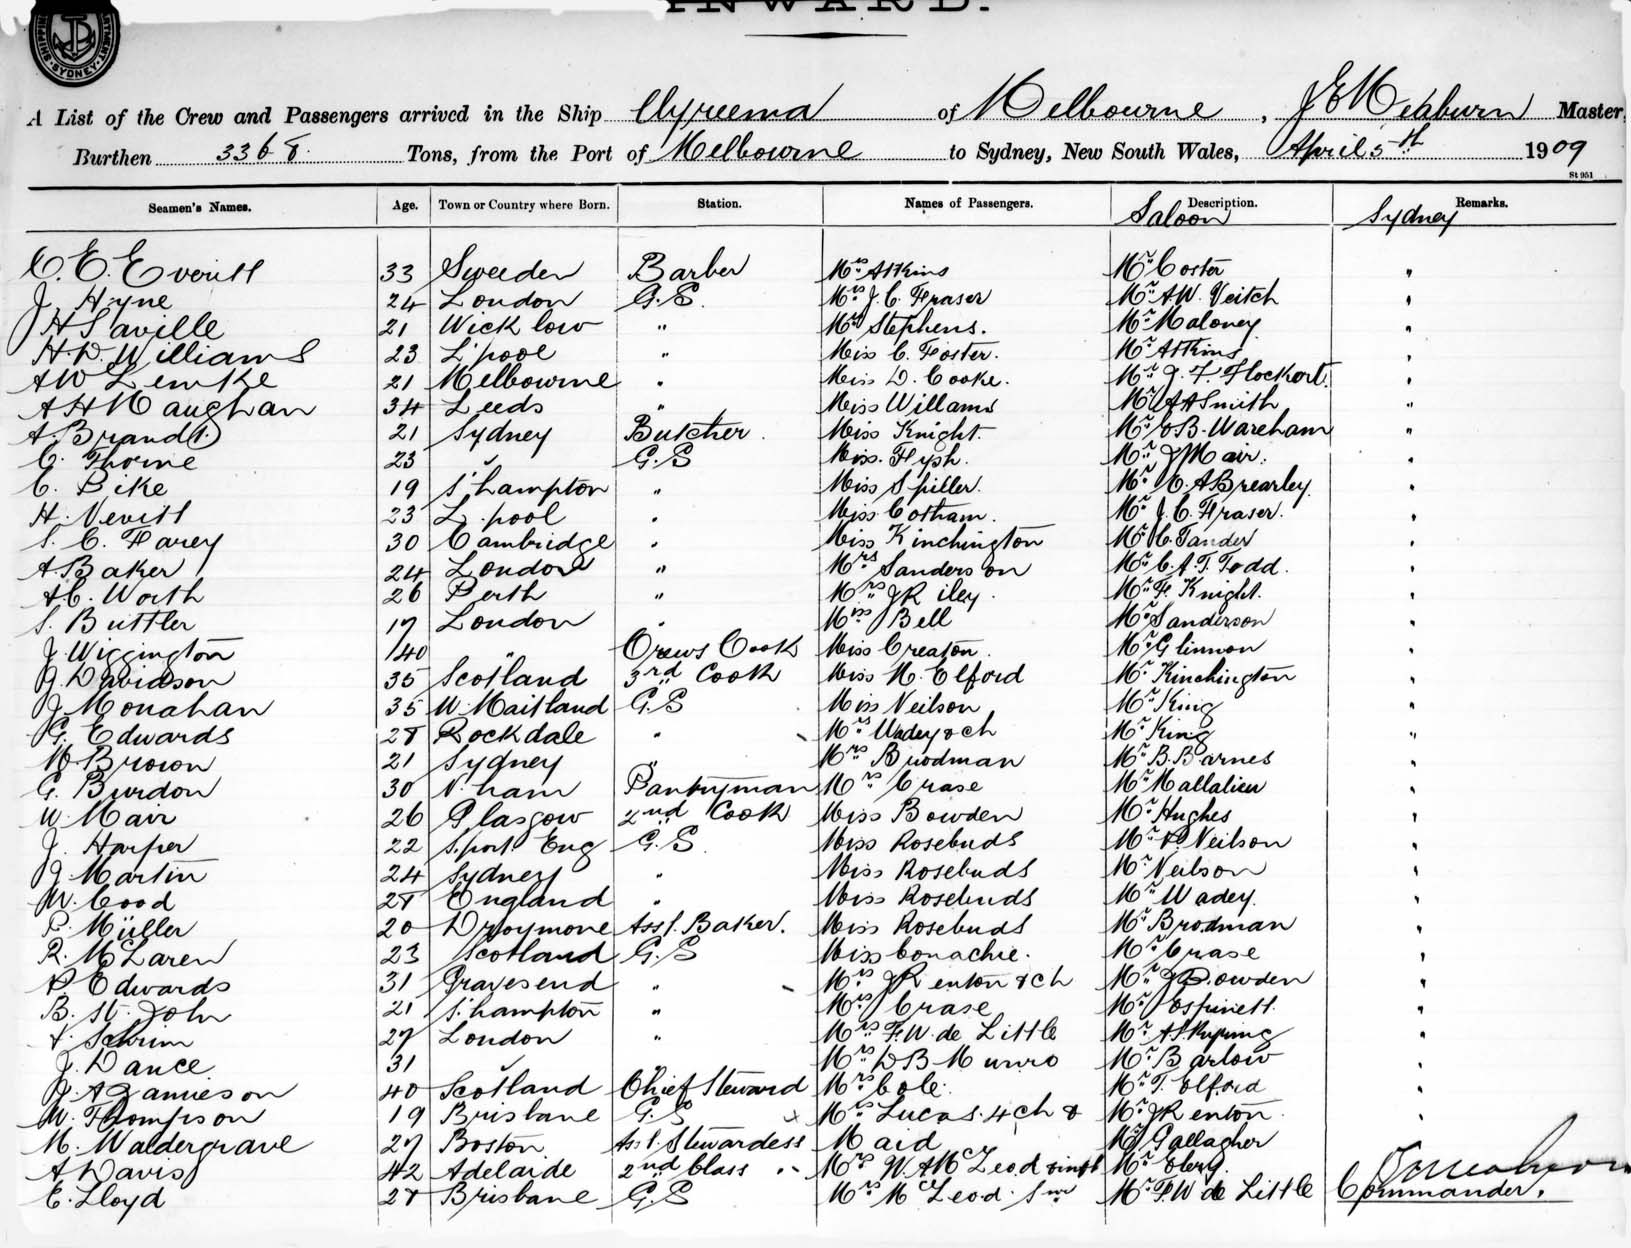 INWARD.
SHIPPING
SYDNEY
A List of the Crew and Passengers arrived in the Ship Wyreema of Melbourne, Master,
Burthen 3368 Tons, from the Port of Melbourne to Sydney, New South Wales, April 5th 1909
St 951
Seamen's Names. Age. Town or Country where Born. Station. Names of Passengers. Description. Remarks.
Saloon Sydney
C. E. Everitt 33 Sweden Barber Mrs Atkins Mr Coster "
J. Hyne 24 London G.S. Mrs J. C. Fraser Mr A W. Veitch "
H Saville 21 Wicklow " Mrs Stephens. Mr Maloney "
H. D. Williams 23 L'pool " Miss C. Foster. Mr Atkins "
A W Lemke 21 Melbourne " Miss D. Cooke. Mr J. F. Flockart. "
A H Maughan 34 Leeds " Miss Willams Mr A A Smith "
A. Brandt 21 Sydney Butcher. Miss Knight. Mr E B. Wareham "
C. Thorne 23 " G.S Miss. Fysh. Mr J Mair. "
C. Pike 19 S'hampton " Miss Spiller. Mr C. A Brearley "
H. Nevitt 23 L. pool " Miss Cotham. Mr J. C. Fraser. "
S. C. Farey 30 Cambridge " Miss Kinchington Mr C. Tander "
A. Baker 24 London " Mrs Sanderson Mr C. A. T. Todd. "
A. C. Worth 26 Perth " Mrs J Riley. Mr F. Knight. "
S. Buttler 17 London " Miss Bell Mr Sanderson "
J. Wiggington 40 " Crews Cook Miss Creaton. Mr Glinnon "
J. Davidson 35 Scotland 3rd Cook Miss M. Elford Mr Kinchington "
J Monahan 35 W. Maitland G.S Miss Neilson Mr King "
G. Edwards 28 Rockdale " Mrs Wadey & ch Mr King "
W. Brown 21 Sydney " Mrs Brodman Mr B. Barnes "
G. Burdon 30 N. ham Pantryman Mrs Crase Mr Mallalieu "
W. Mair 26 Glasgow 2nd Cook Miss Bowden Mr Hughes "
J. Harper 22 S. port Eng G.S. Miss Rosebuds Mr P. Neilson "
J. Martin 24 Sydney " Miss Rosebuds Mr Neilson "
W. Cood 28 England " Miss Rosebuds Mr Wadey. "
P. Müller 20 Asst. Baker. Miss Rosebuds Mr Brodman "
R. McLaren 23 Scotland G.S Miss Conachie. Mr Crase "
P. Edwards 31 Gravesend " Mrs J Renton & ch Mr J Bowden "
B. St. John 21 S. hampton " Mrs Crase Mr Espinett. "
27 London " Mrs F. W. de Little Mr "
J. Dance 31 " " Mrs D B Munro Mr Barlow "
J. A Jamieson 40 Scotland Chief Steward Mrs Cole. Mr T. Elford "
W. Thompson 19 Brisbane G.S Mrs Lucas. 4 ch & Mr J Renton. "
M. Waldergrave 27 Boston Asst. Stewardess Maid Mr Gallagher
A Davis 42 Adelaide 2nd Class Mrs W. A McLeod & inft Mr
E. Lloyd 28 Brisbane G.S Mrs McLeod. Snr Mr F. W de Little Commander.